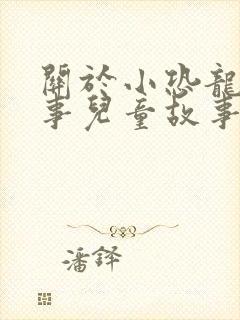 關於小恐龍
事兒童故事
潘鐸